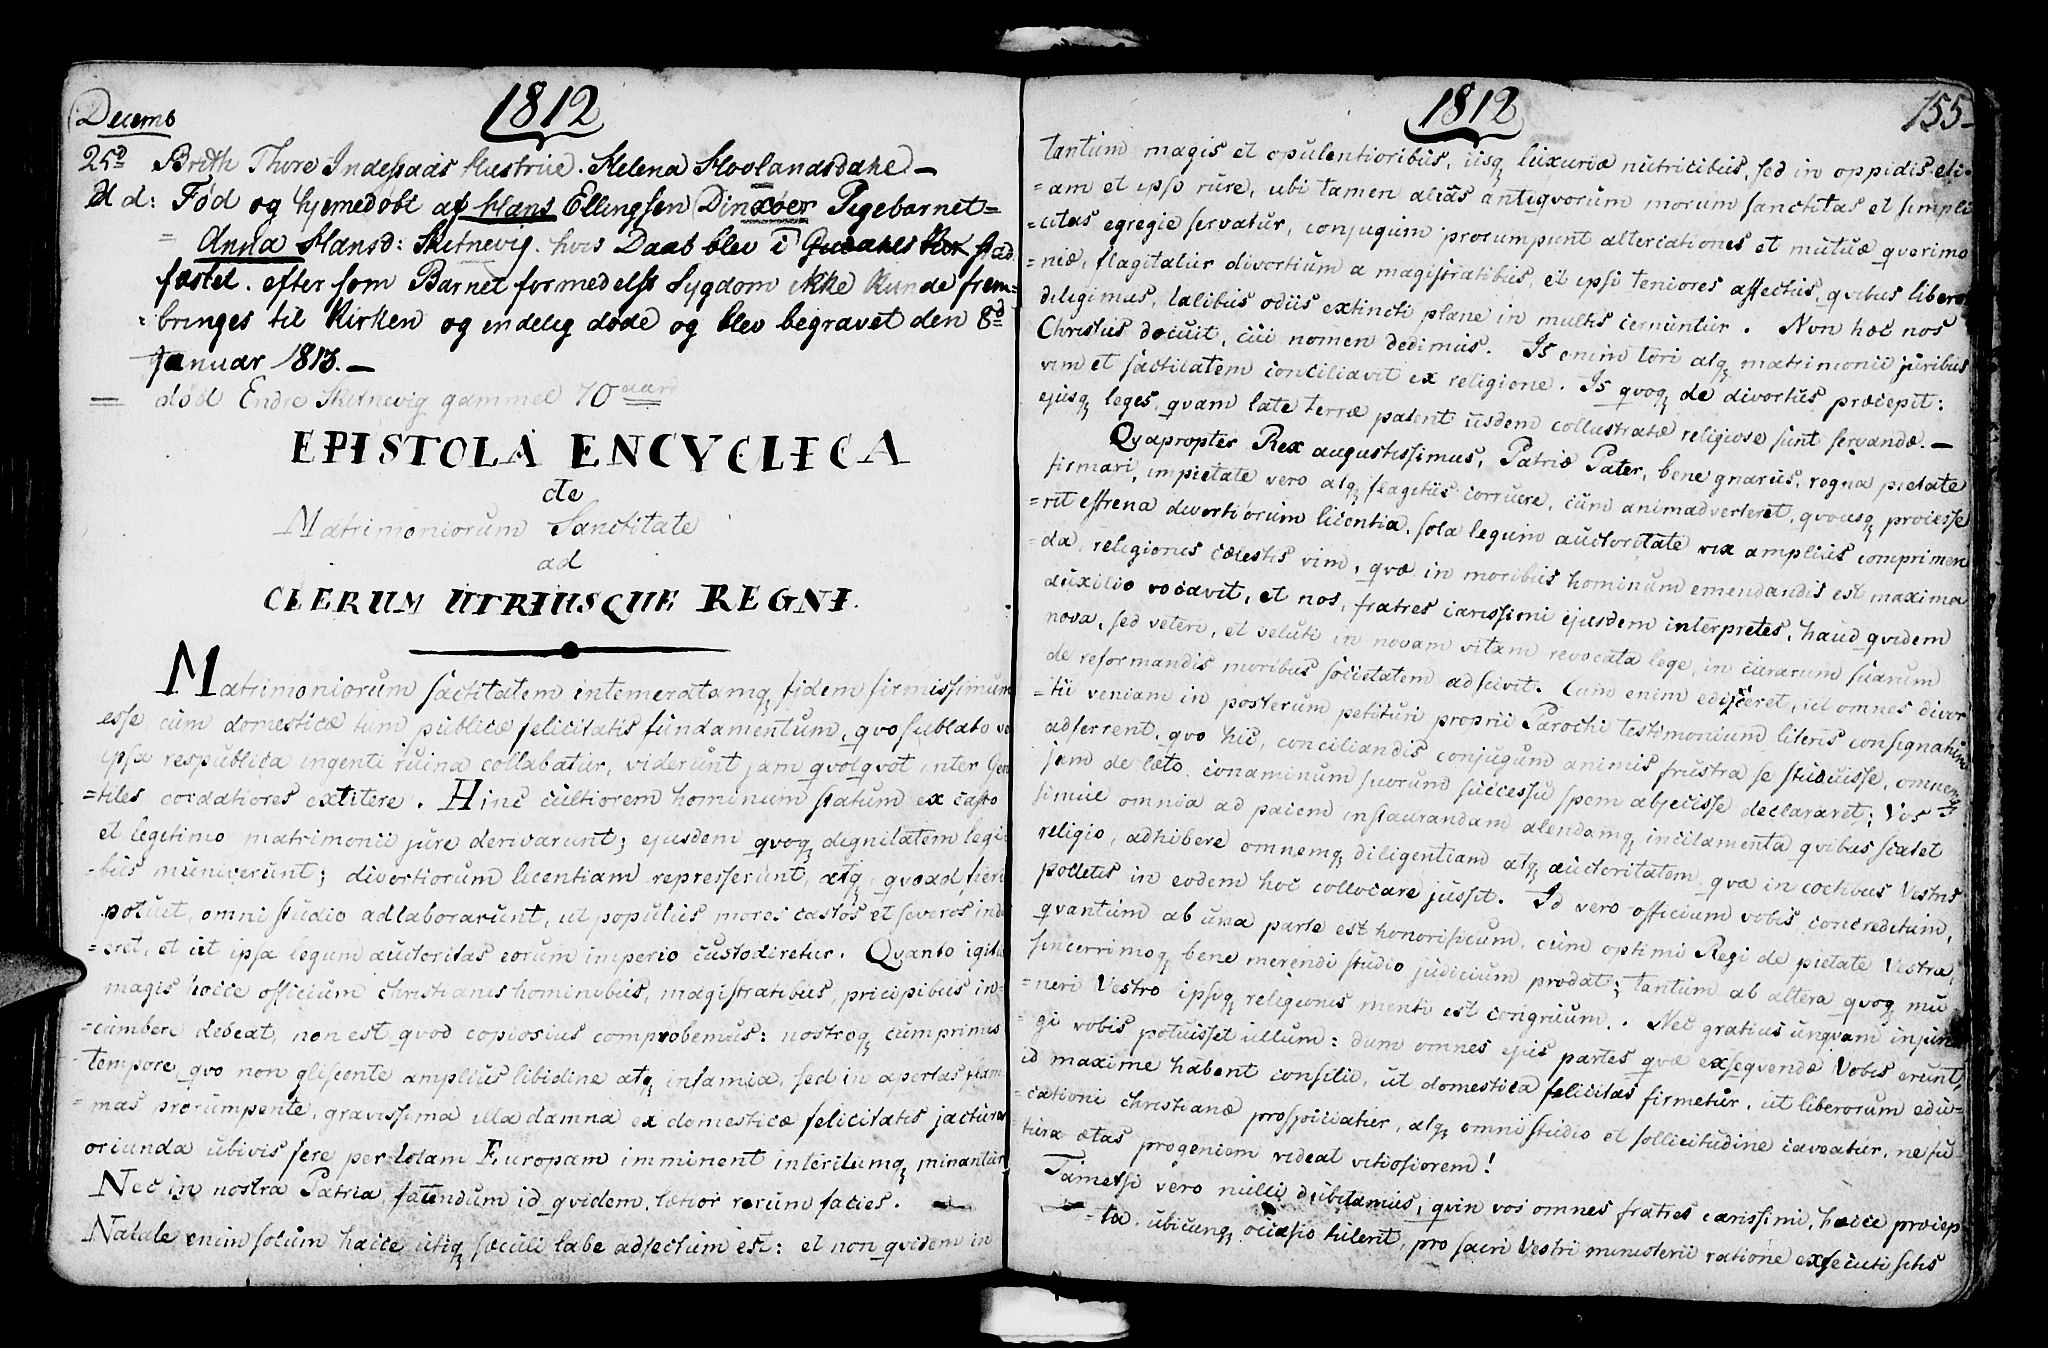 1812
Decemb
25d Brith Thore Indessaas Hustrue. Helena Hoolandsdake —
D d: Fød og hjemedøbt af Hans Ellingsen Dinxøer Pigebarnet=
= Anna Hansd: Skitnevig. hvis Daab blev i Gudahls Kirk stad
fæstet. efter som Barnet formedelst Sygdom ikke kunde frem=
=bringes til Kirken og endelig døde og blev begravet den 8d
Januar 1813. —
= død Endre Skitnevig gammel 70 aar
EPISTOLA ENCYCLICA
de
Matrimoniorum Sanctitate
ad
CLERUM UTRIUSQUE REGNI.
Matrimoniorum sactitatem intemeratamq fidem firmissimum
esse, cum domesticæ tum publicæ felicitatis fundamentum, qvo sublato
ipsa respublica ingenti ruina collabatur, viderunt jam qvotqvot inter Gen
=tiles cordatiores extitere. Hinc cultiorem hominum statum ex casto
et legitimo matrimonii jure derivarunt; ejusdem qvoq dignitatem legi
=bus muniverunt; divortiorum licentiam represserunt, atq, qvoad fieri
potuit, omni studio adlaborarunt, ut populus mores castos et severos indu
=eret, et ut ipsa legum auctoritas eorum imperio custodiretur. Qvanto igitur
magis hocce officium christianis hominibus, magistratibus, pricipibus in=
=cumbere debeat, non est qvod copiosius comprobemus: nostroq cumprimis
tempore qvo non gliscente amplius libidine atq infamia, sed in apertas flam
=mas prorumpente, gravissima illa damna ex domesticæ felicitatis jactura
oriunda ubivis fere per totam Europam imminent interitumq minantur
Nec in nostra Patria fatendum id qvidem, lætior rerum facies. —
Natale enim solum hacce utiq sæculi labe adfectum est: et non qvidem in
1812
155-
tantum magis et opulentioribus, iisq luxuriæ nutricibus, sed in oppidis eti-
=am et ipso rure, ubi tamen alias antiqvorum morum sanctitas et simpli
=citas egregie servatur, conjugum prorumpunt altercationes et mutuæ qverimo
=niæ, flagitatur divortium a magistratibus, et ipsi teniores affectus, qvibus liberos
diligimus, talibus odiis extincti plane in multis cernuntur. Non hoc nos
Christus docuit, cui nomen dedimus. Is enim tori atq matrimonii juribus
vim et sactitatem conciliavit ex religione. Is qvoq de divortiis præcepit:
ejusq leges, qvam late terræ patent iisdem collustratæ religiose sunt servandæ. —
Qvapropter Rex augustissimus, Patriæ Pater, bene gnarus, regna pietate
firmari, impietate vero atq flagitiis corruere, cum animadverteret, qvousq processe
=rit effrena divortiorum licentia, sola legum auctoritate vix amplius comprimen
=da, religionis cælestis vim, qvæ in moribus hominum emendandis est maxima
auxilio vocavit, et nos, fratres carissimi ejusdem interpretes, haud qvidem
nova, sed veteri, et veluti in novam vitam revocata lege, in curarum suarum
de reformandis moribus societatem adscivit. Cum enim ediceret, ut omnes divor
=tii veniam in posterum petituri proprii Parochi testimonium literis consignatum
adferrent, qvo hic, conciliandis conjugum animis frustra se studuisse, omnemq
jam de læto conaminum suorum successu spem abjecisse declararet; Vos
simul omnia ad pacem instaurandam alendamq incitamenta qvibus scatet
religio, adhibere omnemq diligentiam atq auctoritatem qva in coetibus Vestris
polletis in eodem hoc collocare jussit. Id vero officium vobis concreditum,
qvantum ab una parte est honorificum, cum optimi Regi de pietate Vestra,
sincerrimoq bene merendi studio judicium prodat; tantum ab altera qvoq mu
=neri Vestro ipsiq religionis menti est congruum. Nec gratius unqvam injun
=gi vobis potuisset ullum: dum omnes ejus partes qvæ exseqvendæ Vobis erunt,
id maxime habent consilii, ut domestica felicitas firmetur, ut liberorum edu=
=cationi christianæ prospiciatur, atq omni studio et sollicitudine caveatur, ne fu=
tura ætas progeniem videat vitiosiorem!
Tametsi vero nulli dubitamus, qvin vos omnes fratres carissimi, hæcce præcep
=ta, ubicunq occasio tulerit, pro sacri Vestri ministerii ratione exsecuti sitis